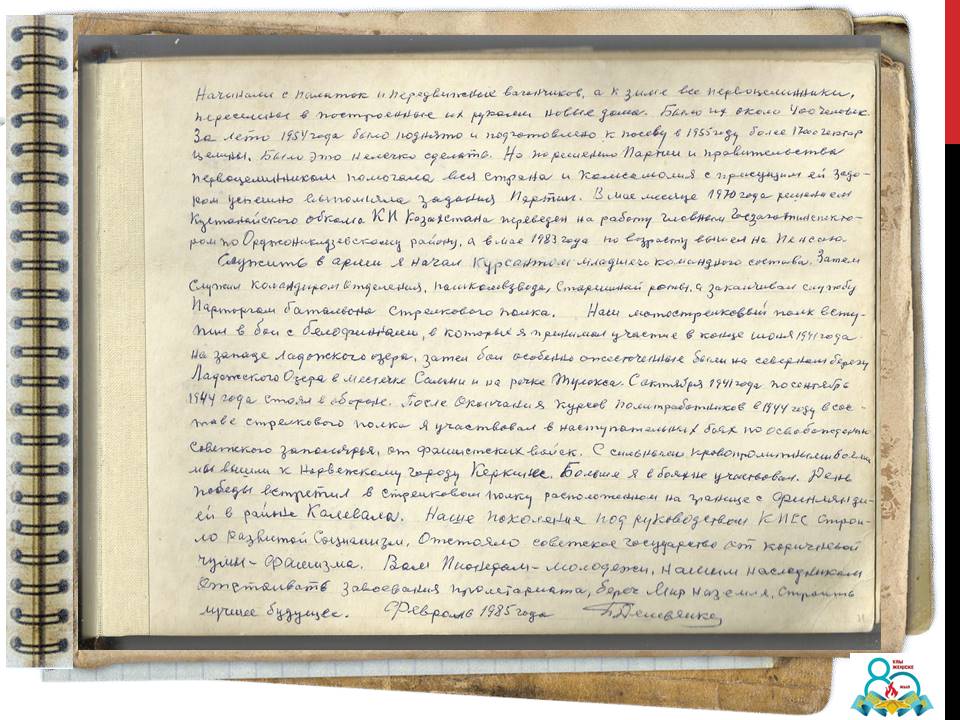 Начинали с палаток и передвижных вагончиков, а к зиме все первоцелинники,
переселились в построенные их руками новые дома. Было их около 400 человек.
За лето 1954 года было поднято и подготовлено к посеву в 1955 году более гектар
целины. Было это нелегко сделать. Но по решению Партии и правительства
первоцелинникам помогала вся страна и комсомолия с присущим ей задо-
ром успешно выполняла задания Партии. В мае месяце 1970 года решением
Кустанайского обкома КП Казахстана переведен на работу главным Госзаготинспекто-
ром по Орджоникидзевскому району, а в мае 1983 года по возрасту вышел на Пенсию.
Служить в армии я начал Курсантом младшего командного состава. Затем
служил командиром отделения, помкомвзвода, старшиной роты, а заканчивал службу
Парторгом батальона стрелкового полка. Наш мотострелковый полк всту-
пил в бои с белофиннами, в которых я принимал участие в конце июня 1941 года
на западе Ладожского озера, затем бои особенно ожесточенные были на северном берегу
Ладожского Озера в местечке Салми и на речке Тулокса. С октября 1941 года по сентябрь
1944 года стоял в обороне. После окончания курсов политработников в 1944 году в сос-
таве стрелкового полка я участвовал в наступательных боях по освобождению
советского заполярья, от фашистских войск. С сильными кровопролитными боями
мы вышли к Норвежскому городу Керкинес. Больше я в боях не участвовал. День
победы встретил в стрелковом полку расположенном на границе с Финлянди-
ей в районе Калевала. Наше поколение под руководством КПСС строи-
ло развитой Социализм, Отстояло советское государство от коричневой
чумы - фашизма. Вам Пионерам - молодежи, нашим наследникам
отстаивать завоевания пролетариата, беречь Мир на земле, строить
лучшее будущее. Февраль 1985 года
ҰЛЫ
ЖЕҢІСКЕ
80
ЖЫЛ